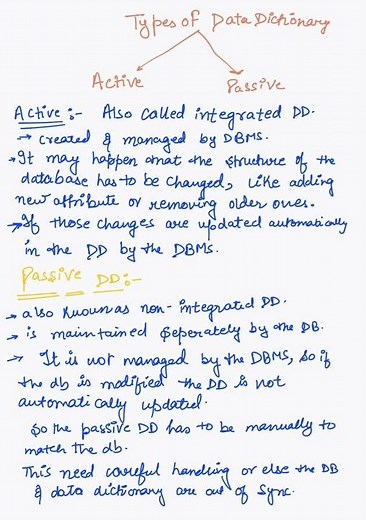 Types of Data Dictionary
Active
Passive
Active :- Also called integrated DD.
→ created & managed by DBMS.
→ It may happen that the structure of the
database has to be changed, like adding
new attribute or removing older ones.
→ If those changes are updated automatically
in the DD by the DBMS.
Passive DD:-
→ also known as non-integrated DD.
→ is maintained seperately by the DB.
→ It is not managed by the DBMS, so if
the db is modified the DD is not
automatically updated.
So the passive DD has to be manually to
match the db.
This need careful handling or else the DB
& data dictionary are out of sync.